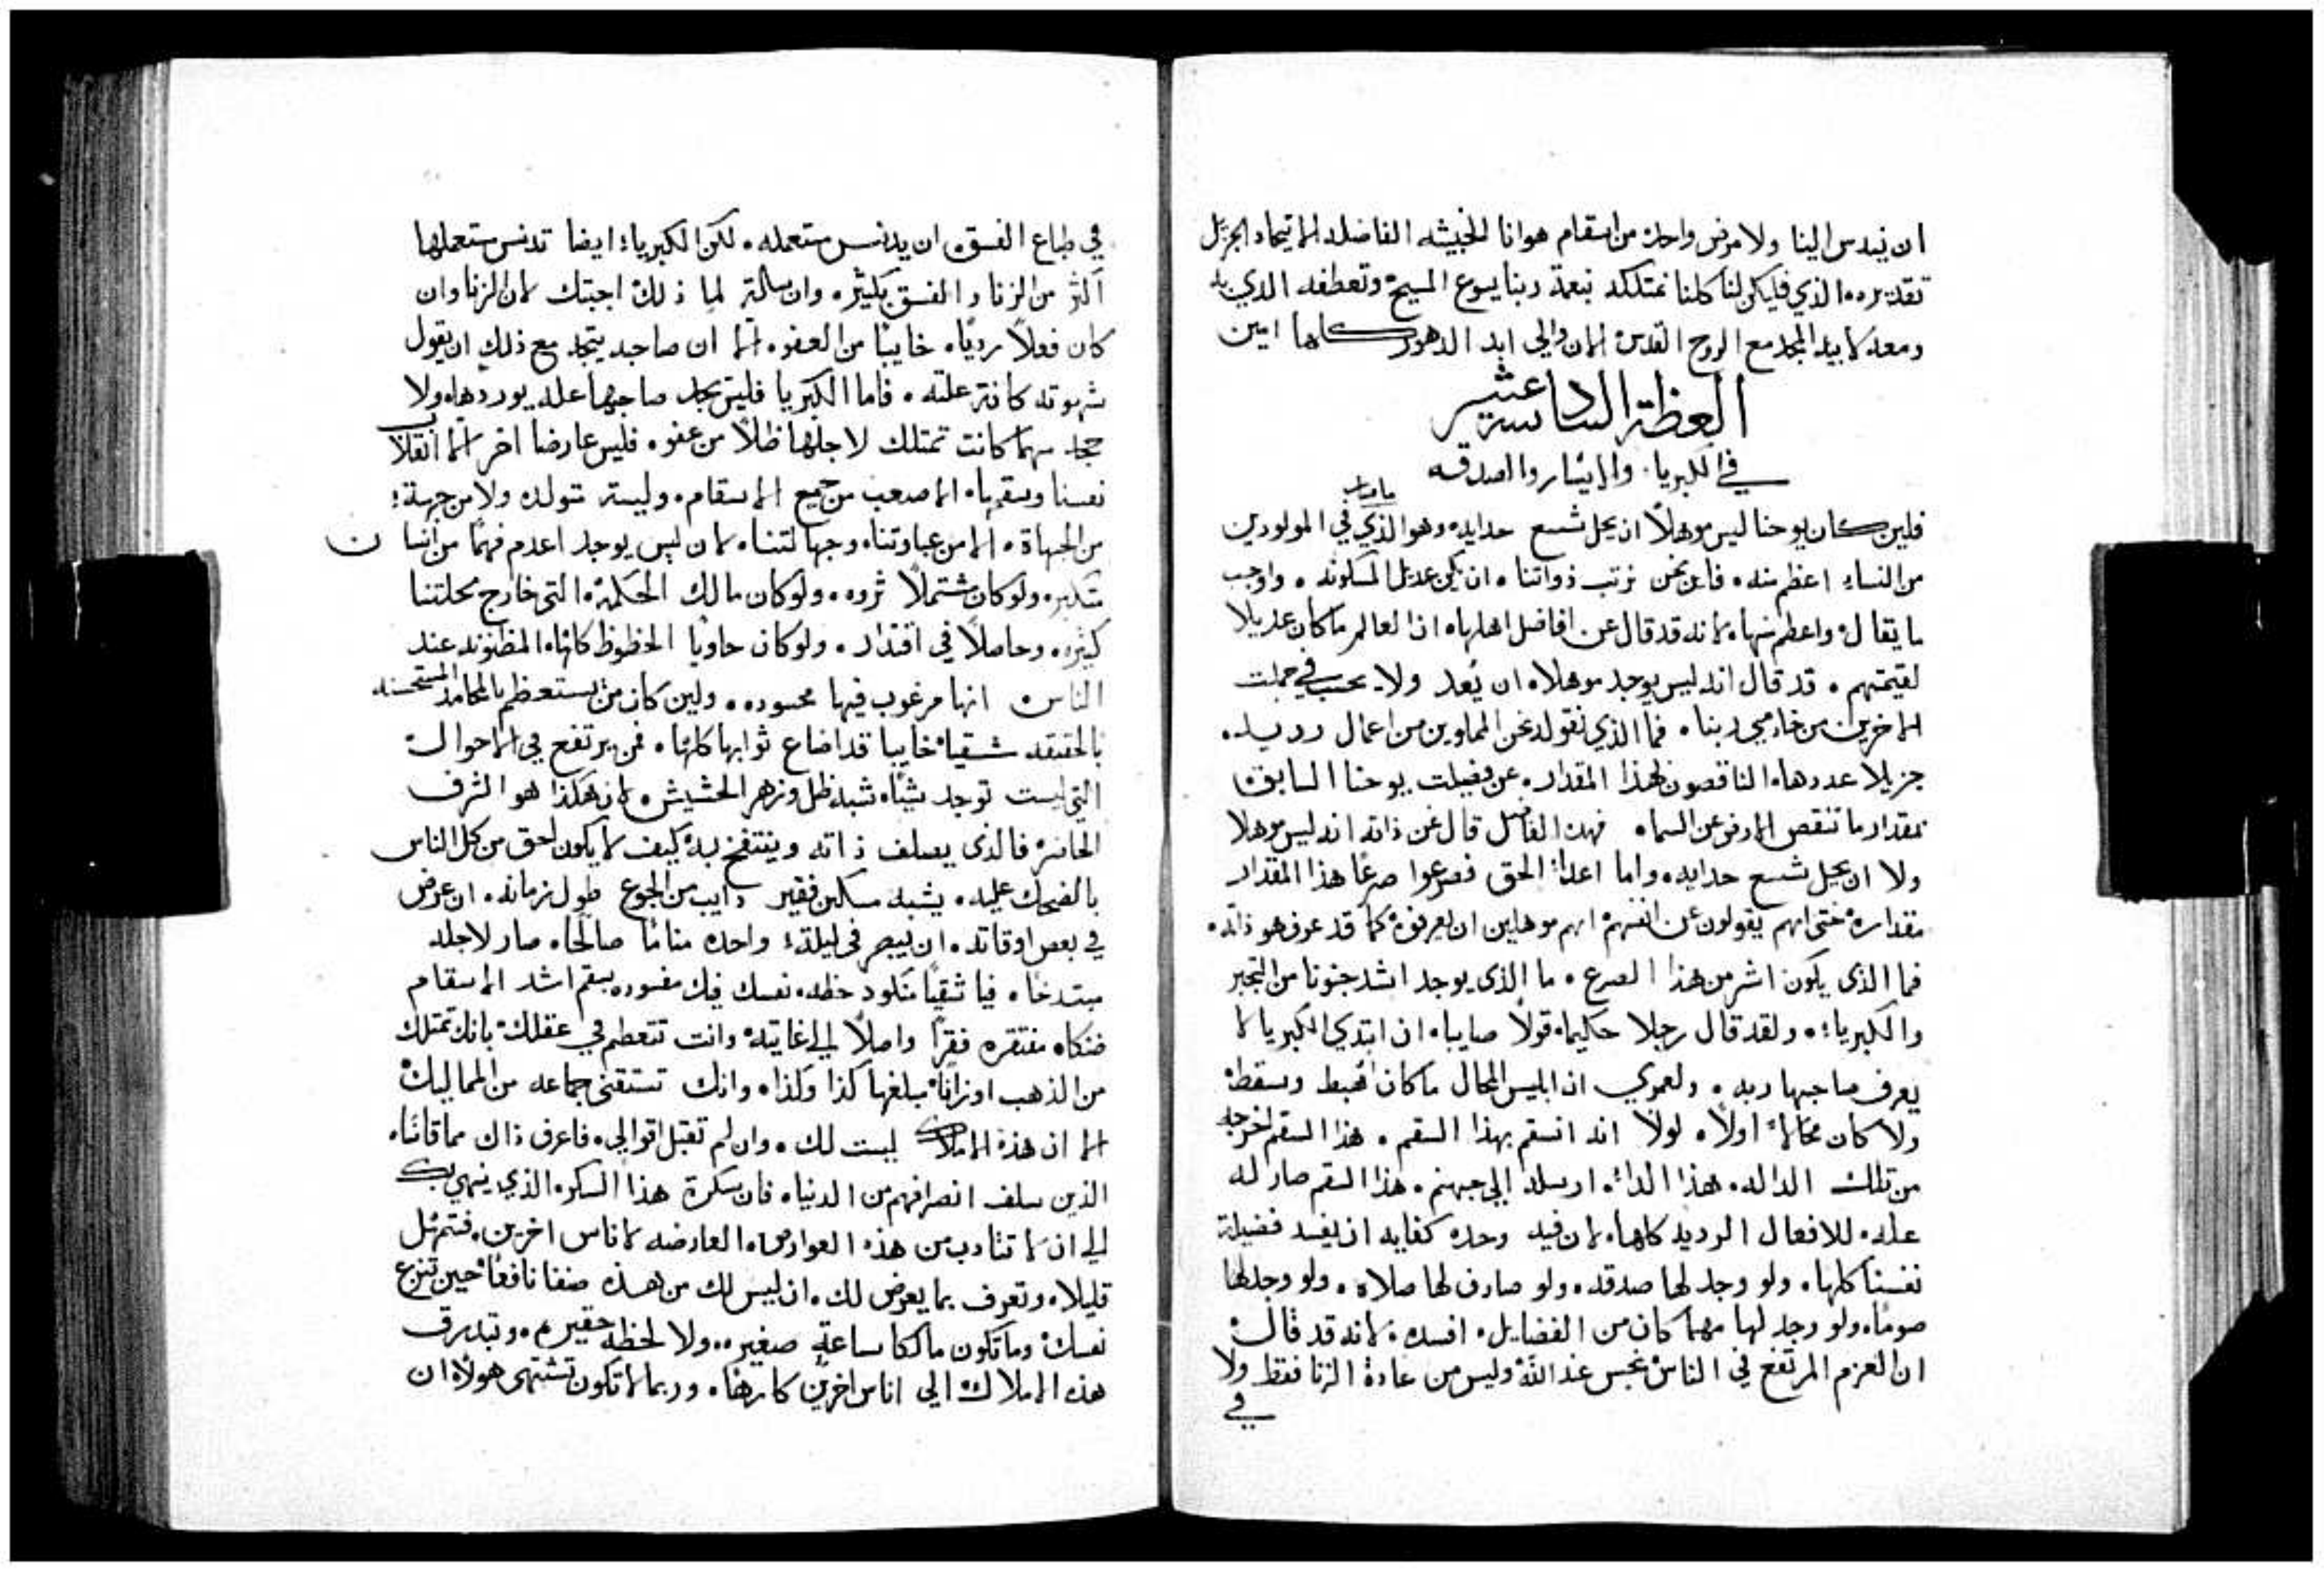 ان يندس الينا ولا مرض واحد من اسقام هوانا الخبيثه الفاضله
تقديره الذي فليكن لنا كلنا نمتلكه بنعمة ربنا يسوع المسيح وتعطفه الذي له
ومعه لابيه المجد مع الروح القدس الان والى ابد الدهور كلها امين
العظة السادسة عشر
في الكبريا والايثار والصدقه
فلين كان يوحنا ليس موهلاً ان يحل شسع حدايه وهو الذي في المولودين
من النساء اعظم منه فاين نحن نرتب ذواتنا ان يكن عديل المسكونه واوجب
ما يقال واعظم منها لانه قد قال عن افاضل اهلها ان العالم ما كان عديلا
لقيمتهم قد قال انه ليس يوجد موهلا ان يُعد ولا يحسب في جملت
الاخرين من خادمي ربنا فما الذي نقوله نحن المحاوين من اعمال رديه
جزيلا عددها الناقصون لهذا المقدار عن فضيلت يوحنا السابق
بمقدار ما تنقص الارض عن السما فهذا الفاضل قال عن ذاته انه ليس موهلا
ولا ان يحيل شسع حدايه واما اعدا الحق فصرعوا صرعًا هذا المقدار
مقداره حتى انهم يقولون عن انفسهم انهم موهلين ان يعرفوه كما قد عرف هو ذاته
فما الذي يكون اشر من هذا الصرع ما الذي يوجد اشد جنونا من التجبر
والكبرياء ولقد قال رجلا حكيما قولاً صايبا ان ابتدي الكبريا لا
يعرف صاحبها ربه ولعمري ان ابليس المحال ما كان اهبط وسقط
ولا كان محالا اولاً لولا انه انسقم بهذا السقم هذا السقم اخرجه
من تلك الداله هذا الداء ارسله الى جهنم هذا السقم صار له
عله للافعال الرديه كلها لان فيه وحده كفايه ان يفسد فضيلة
نفسنا كلها ولو وجد لها صدقه ولو صادف لها صلاه ولو وجد لها
صومًا ولو وجد لها مهما كان من الفضايل افسده لانه قد قال
ان العزم المرتفع في الناس نجس عند الله وليس من عادة الزنا فقط ولا
في
في طباع الفسق ان يدنس مستعمله لكن الكبرياء ايضا تدنس مستعملها
اكثر من الزنا والفسق بكثير وان سالت لما ذلك اجبتك لان الزنا وان
كان فعلاً رديًا خايبًا من العفو الا ان صاحبه يتجه مع ذلك ان يقول
شهوته كانت علته فاما الكبريا فليس يجد صاحبها عله يوردها ولا
حجه مهما كانت تمتلك لاجلها ظلاً من عفو فليس عارضا اخر الا انقلاب
نفسنا وسقمها الاصعب من جميع الاسقام وليست تتولد ولا من جهة
من الجهاة الا من غباوتنا وجهالتنا لان ليس يوجد اعدم فهمًا من انسان
متكبر ولو كان مشتملاً ثروه ولو كان مالك الحكمة التي خارج محلتنا
كثيره وحاصلاً في اقتدار ولو كان حاويا الحظوظ كلها المظنونه عند
الناس انها مرغوب فيها محسوده ولين كان من يستعظم بالمحامد المستحسنه
بالحقيقه شقيا خايبا قد اضاع ثوابها كلها فمن يرتفع في الاحوال
التي ليست توجد شيًا شبه ظل وزهر الحشيش لان هكذا هو الشرف
الحاضر فالذي يصلف ذاته وينتفخ به كيف لا يكون احق من كل الناس
بالضحك عليه يشبه مسكين فقير دايب من الجوع طول زمانه ان عرض
في بعض اوقاته ان يبصر في ليلة واحده منامًا صالحًا صار لاجله
مبتدخا فيا شقيًا منكود حظه نفسك فيك مفسوده بسقم اشد الاسقام
ضنكا مفتقره فقرًا واصلاً الى غايته وانت تتعظم في عقلك بانك تمتلك
من الذهب اوزانًا مبلغها كذا وكذا وانك تستقني جماعه من المماليك
الا ان هذه الاملاك ليست لك وان لم تقبل اقوالي فاعرف ذاك مما قاساه
الذين سلف انصرافهم من الدنيا فان سكرة هذا السكر الذي ينهي بك
الى ان لا تتادب من هذه العوارض العارضه لاناس اخرين فتمهل
قليلا وتعرف بما يعرض لك ان ليس لك من هذه صنفا نافعًا حين تنزع
نفسك وما تكون مالكا ساعة صغيره ولا لحظه حقيره وتبدرق
هذه الاملاك الى اناس اخرين كارها وربما لا تكون تشتهي هولاء ان